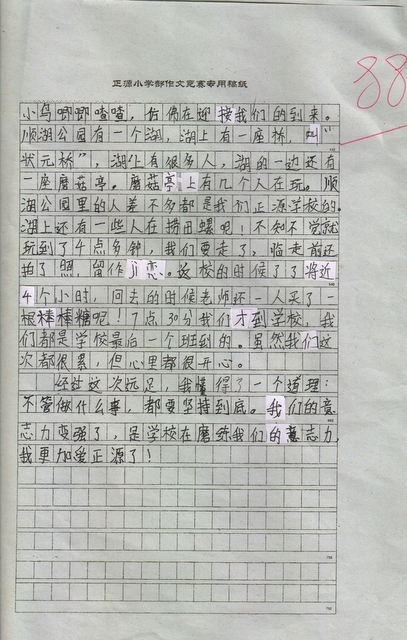 正源小学部作文竞赛专用稿纸
88
小鸟唧唧喳喳，仿佛在迎接我们的到来。
顺湖公园有一个湖，湖上有一座桥，叫“
状元桥”，湖化有很多人，湖的一边还有
一座蘑菇亭。蘑菇亭上有几个人在玩。顺
湖公园里的人差不多都是我们正源学校的。
湖上还有一些人在捞田螺呢！不知不觉就
玩到了4点多钟，我们要走了，临走前还
拍了照，留作jì恋。返校的时候了了将近
4个小时，回去的时候老师还一人买了一
根棒棒糖呢！7点30分我们才到学校，我
们都是学校最后一个班到的。虽然我们这
次都很累，但心里都很开心。
经过这次远足，我懂得了一个道理：
不管做什么事，都要坚持到底。我们的意
志力变强了，是学校在磨练我们的意志力，
我更加爱正源了！